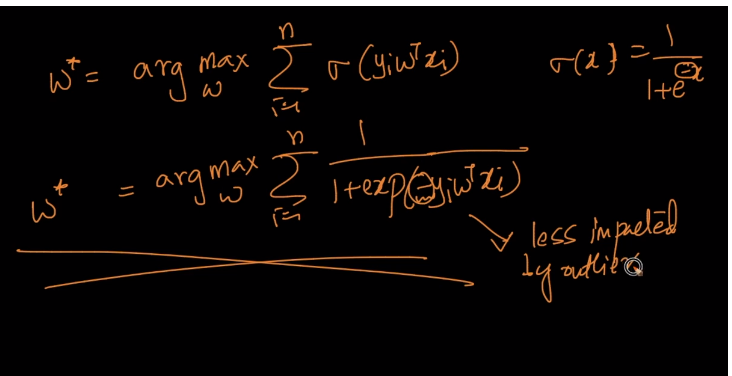 w* = arg max_w Σ_{i=1}^{n} σ(yᵢwᵀxᵢ)    σ(x) = 1/(1+e^{-x})
w* = arg max_w Σ_{i=1}^{n} 1/(1+exp(-yᵢwᵀxᵢ))
less impacted
by outliers